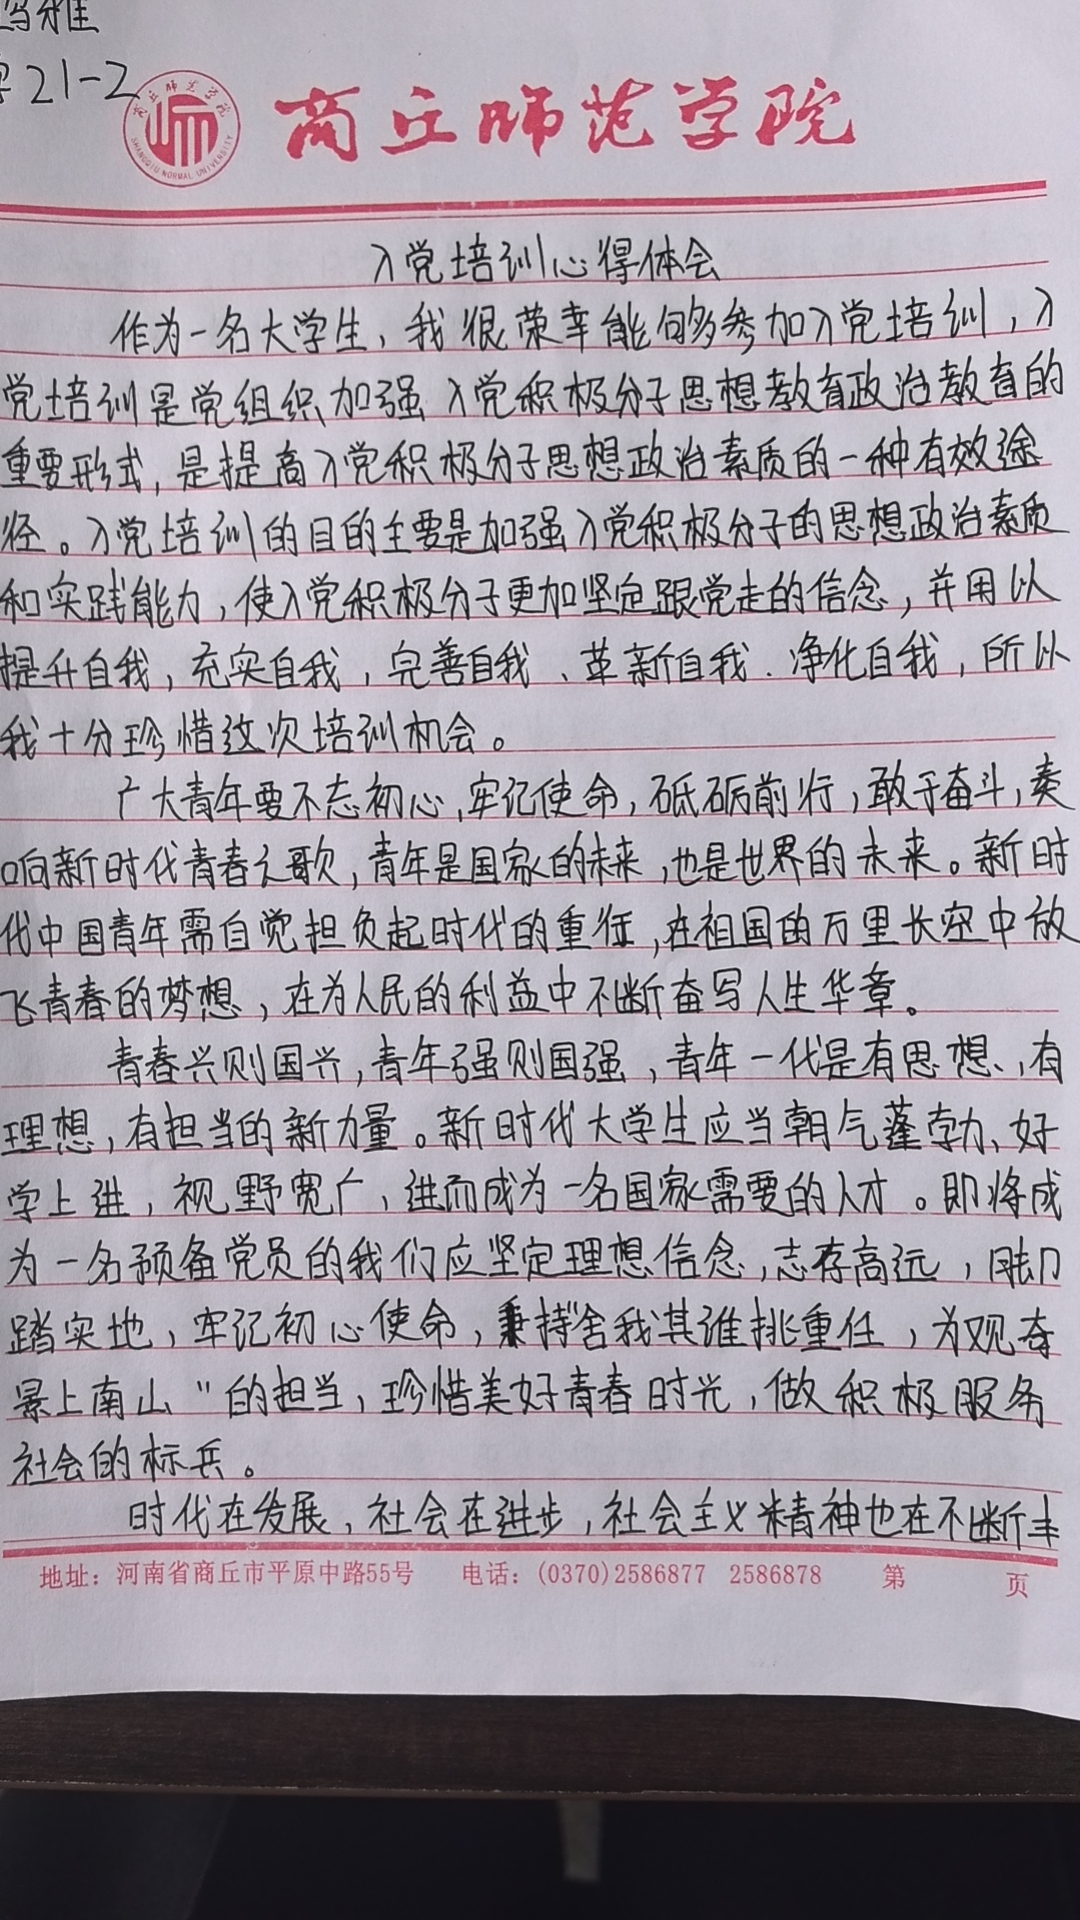 雅
21-2
商丘师范学院
SHANGQIU NORMAL UNIVERSITY
商丘师范学院
入党培训心得体会
作为一名大学生，我很荣幸能够参加入党培训，入
党培训是党组织加强入党积极分子思想教育政治教育的
重要形式，是提高入党积极分子思想政治素质的一种有效途
径。入党培训的目的主要是加强入党积极分子的思想政治素质
和实践能力，使入党积极分子更加坚定跟党走的信念，并用以
提升自我，充实自我，完善自我、革新自我、净化自我，所以
我十分珍惜这次培训机会。
广大青年要不忘初心，牢记使命，砥砺前行，敢于奋斗，奏
响新时代青春之歌，青年是国家的未来，也是世界的未来。新时
代中国青年需自觉担负起时代的重任，在祖国的万里长空中放
飞青春的梦想，在为人民的利益中不断奋写人生华章。
青春兴则国兴，青年强则国强，青年一代是有思想、有
理想，有担当的新力量。新时代大学生应当朝气蓬勃、好
学上进，视野宽广，进而成为一名国家需要的人才。即将成
为一名预备党员的我们应坚定理想信念，志存高远，脚
踏实地，牢记初心使命，秉持舍我其谁挑重任，为观奇
景上南山"的担当，珍惜美好青春时光，做积极服务
社会的标兵。
时代在发展，社会在进步，社会主义精神也在不断丰
地址：河南省商丘市平原中路55号 电话：(0370)2586877 2586878 第 页